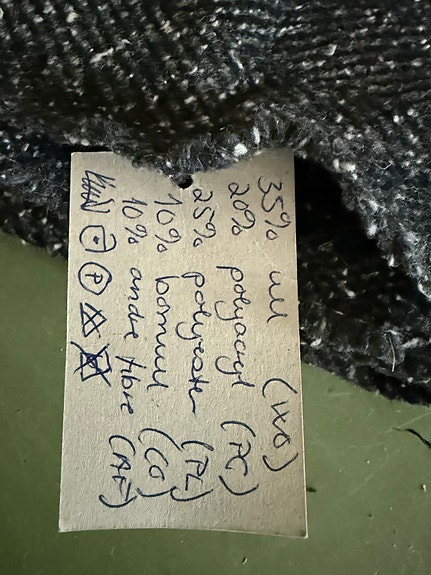 35% ull (WO)
20% polyacryl (PC)
25% polyester (PL)
10% bomull (CO)
10% andre fibre (AF)
P